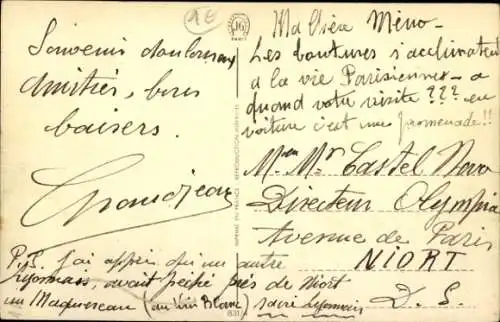 1€
JG
PARIS
Souvenir
amitiés, bons
baisers.
Grandjean
P.S. J'ai appris qu'un autre
Lyonnais, avait pêché près de Niort
un Maquereau (au Vin Blanc) sacré Lyonnais
Ma Chère Mémo-
Les boutures s'acclimatent
à la vie Parisienne - à
quand votre visite ??? en
voiture c'est une promenade!!
Mme Mr Castel Novo
Directeur Olympia
Avenue de Paris
NIORT
D. S.
IMPRIMÉ EN FRANCE - REPRODUCTION INTERDITE
831/4